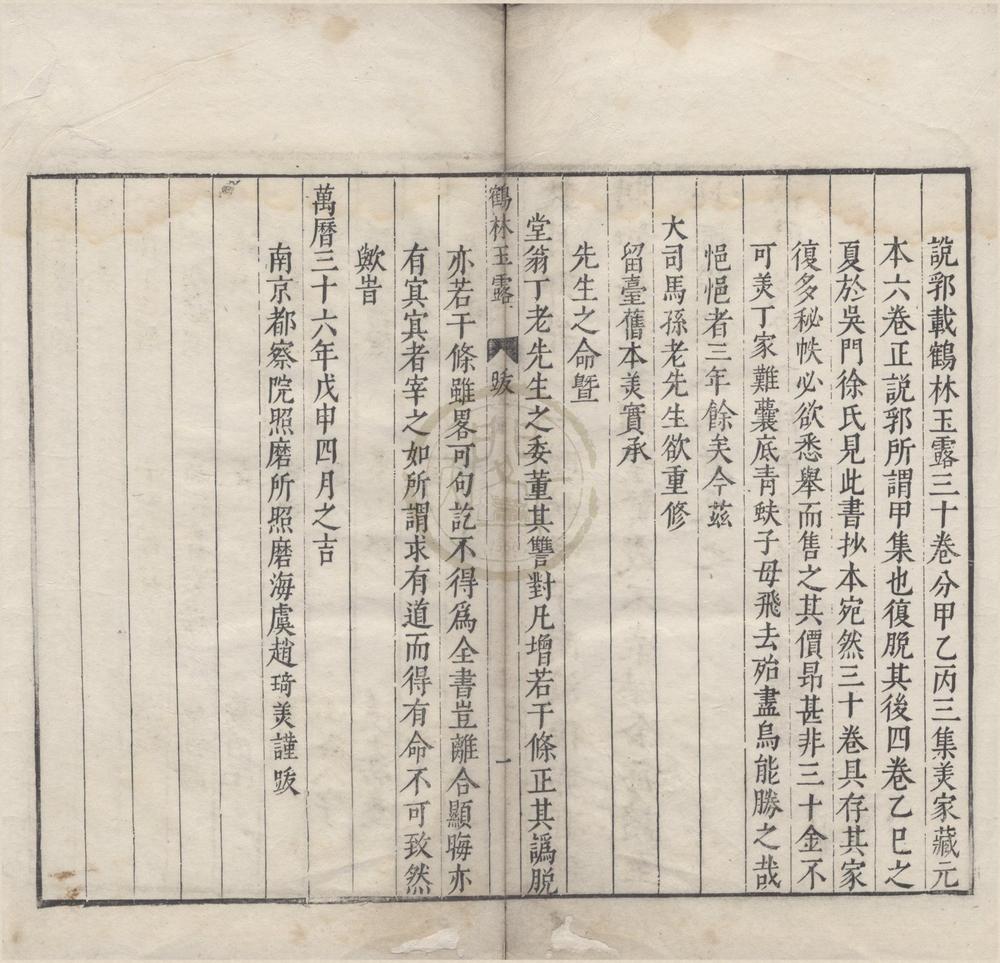 說郛載鶴林玉露三十卷分甲乙丙三集美家藏元
本六卷正說郛所謂甲集也復脫其後四卷乙巳之
夏於吳門徐氏見此書抄本宛然三十卷具存其家
復多秘帙必欲悉舉而售之其價昻甚非三十金不
可羙丁家難囊底青蚨子母飛去殆盡烏能勝之哉
悒悒者三年餘矣今茲
大司馬孫老先生欲重修
留臺舊本羙實承
先生之命暨
堂翁丁老先生之委董其讐對凡增若干條正其譌脱
鶴林玉露 跋 一
亦若干條雖畧可句訖不得爲全書豈離合顯晦亦
有冥冥者宰之如所謂求有道而得有命不可致然
歟旹
萬曆三十六年戊申四月之吉
南京都察院照磨所照磨海虞趙琦美謹跋